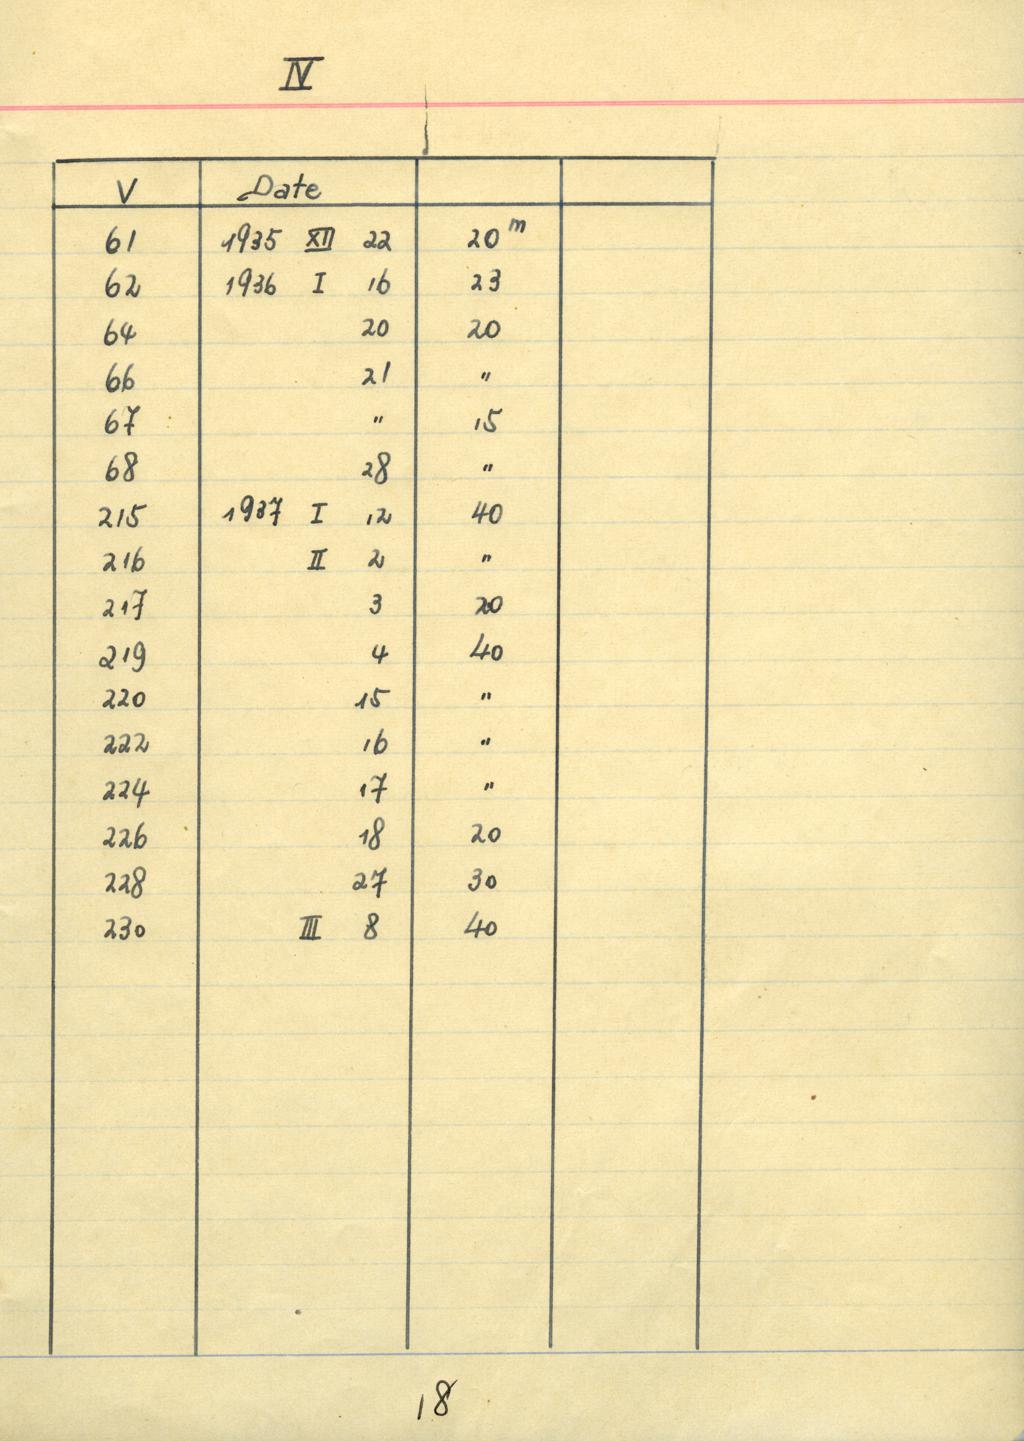 IV
V Date
61 1935 XII 22 20 m
62 1936 I 16 23
64 20 20
66 21 "
67 " 15
68 28 "
215 1937 I 12 40
216 II 2 "
217 3 20
219 4 40
220 15 "
222 16 "
224 17 "
226 18 20
228 27 30
230 III 8 40
18